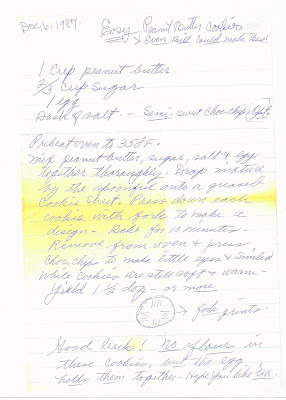 Dec. 6, 1987.
Easy Peanut Butter Cookies
→ Even Bill Could make these!
1 Cup peanut butter
2/3 Cup Sugar
1 egg
Dash of salt. - Semi-sweet choc. chips (Opt.)
Preheat oven to 350° F.
Mix peanut butter, sugar, salt & egg
together thoroughly. Drop mixture
by the spoonful onto a greased
Cookie Sheet. Press down each
cookie with fork to make a
design - Bake for 10 minutes -
Remove from oven & press
Choc. Chips to make little eyes & smiles
while cookies are still soft & warm -
Yield 1 ½ doz - or more
→ fork prints.
Good luck! No flour in
these cookies, but the egg
holds them together. Hope you like 'em.